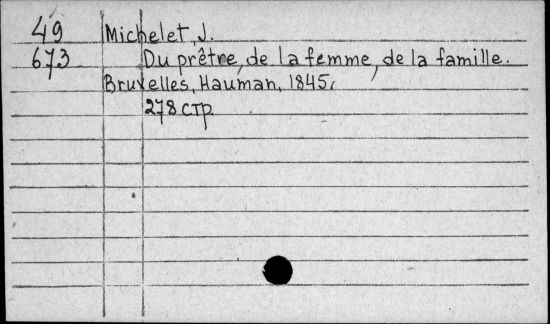 49 Michelet, J.
673 Du prêtre, de la femme, de la famille.
Bruxelles, Hauman, 1845.
278 стр.